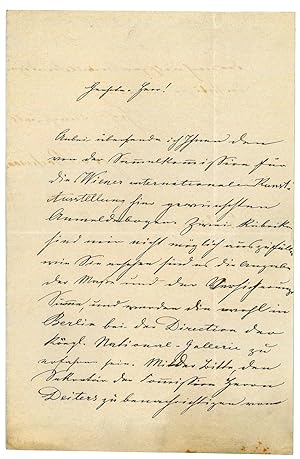 Geehrter Herr!
Anbei übersende ich Ihnen den
von der Sammelkommission für
die Wiener internationale Kunst-
Ausstellung hier gewünschten
Anmeldebogen. Zwei Rubriken
sind mir nicht möglich auszufüllen
wie Sie ersehen sind es die Angabe
der Maße und der Versicherungs
Summe und werden die wohl in
Berlin bei der Direction der
Königl. National-Gallerie zu
erfahren sein. Bitte, den
Sekretär der Comission Herrn
Deiters zu benachrichtigen von